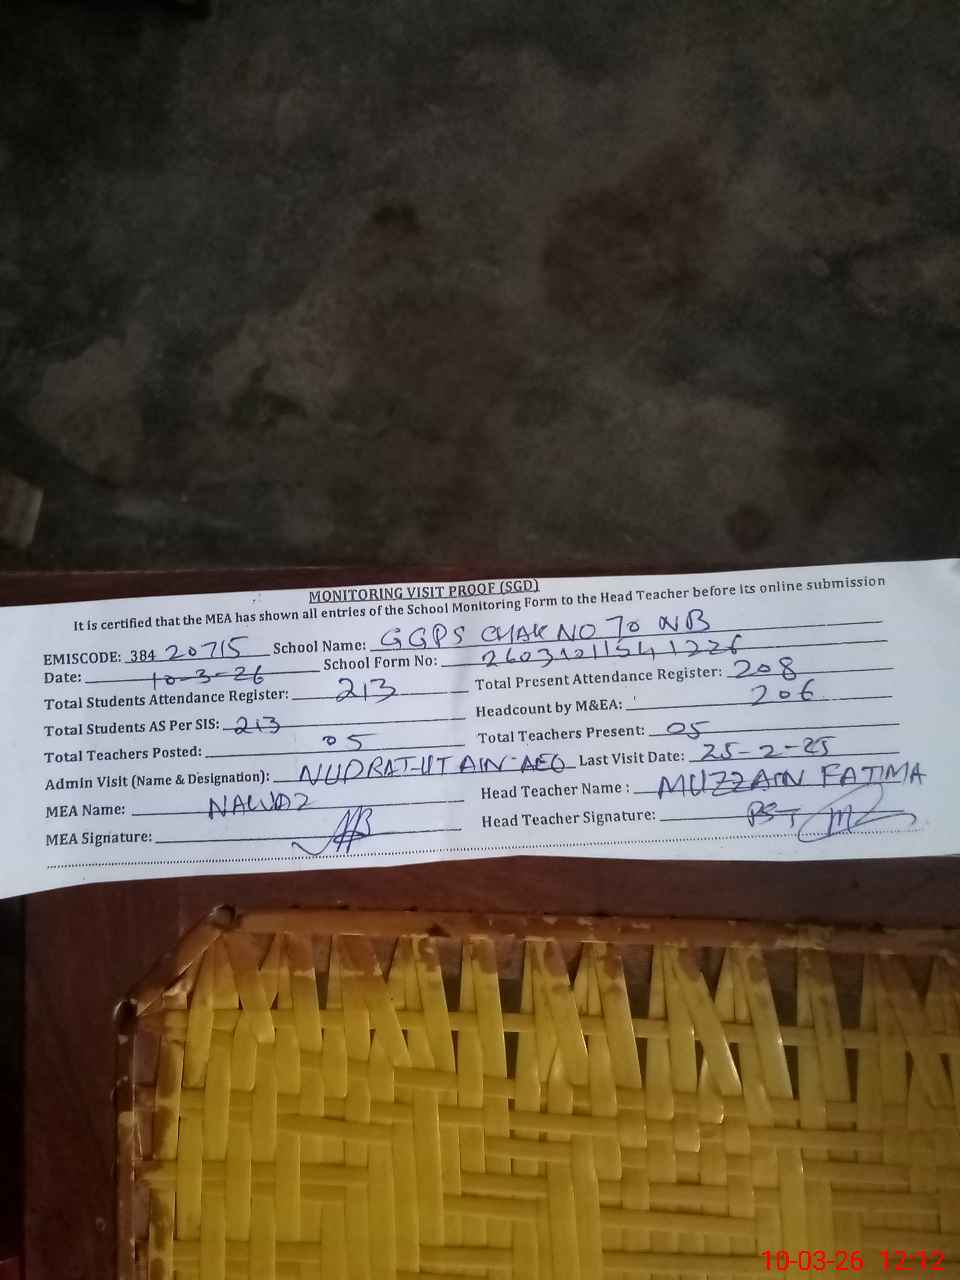 MONITORING VISIT PROOF (SGD)
It is certified that the MEA has shown all entries of the School Monitoring Form to the Head Teacher before its online submission
EMISCODE: 384 20715 School Name: GGPS CHAK NO 70 NB
Date: 10-3-26 School Form No:
Total Students Attendance Register: 213 Total Present Attendance Register: 208
Total Students AS Per SIS: 213 Headcount by M&EA: 206
Total Teachers Posted: 05 Total Teachers Present: 05
Admin Visit (Name & Designation): NUDRAT-UT AIN-AEO Last Visit Date: 25-2-25
MEA Name: NAWAZ Head Teacher Name : MUZZAIN FATIMA
MEA Signature: Head Teacher Signature: PST
10-03-26 12:12